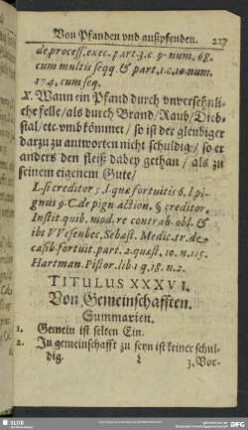 Von Pfanden vnd außpfenden. 227
de process. exec. part. 3. c. 9. num. 68.
cum multis seqq. & part. 1. c. 10. num.
174. cum seq.
X. Wann ein Pfand durch vnversehnli-
che felle/ als durch Brand/ Raub/ Dieb-
stal/ etc. vmbkömmet/ so ist der gleubiger
darzu zu antworten nicht schuldig/ so er
anders den fleiß dabey gethan/ als zu
seinem eigenem Gute/
L. si creditor 5. l. quæ fortuitis 6. l. pi-
gnus 9. C. de pign. action. §. creditor.
Instit. quib. mod. re contrah. obl. &
ibi VVesenbec. Sebast. Medic. tr. de
casib. fortuit. part. 2. quæst. 10. n. 115.
Hartman. Pistor. lib. 1 q. 18. n. 2.
TITULUS XXXVI.
Von Gemeinschafften.
Summarien.
1. Gemein ist selten Ein.
2. In gemeinschafft zu seyn ist keiner schul-
dig.
3. Vor-
SLUB